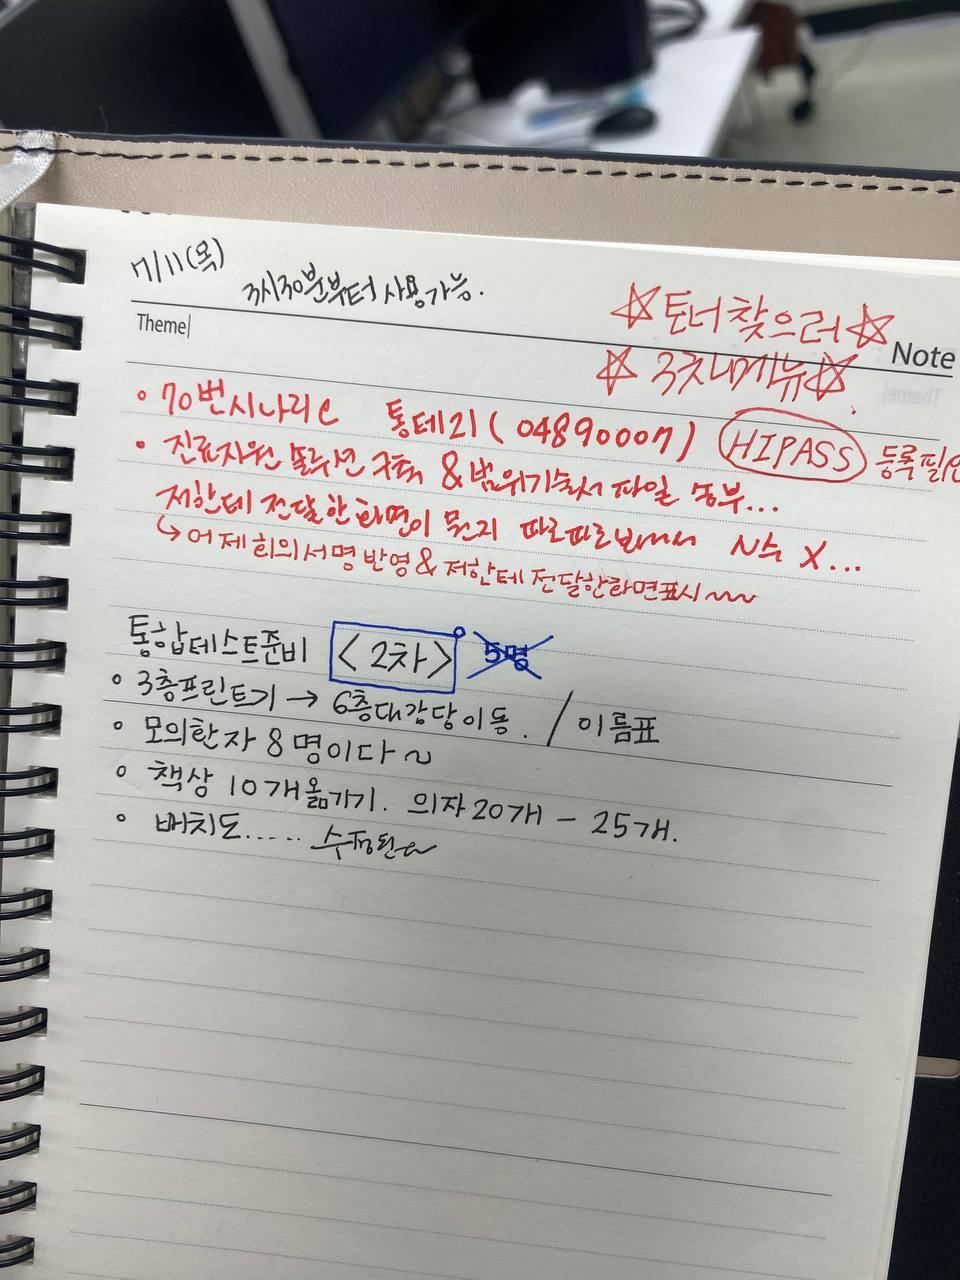 7/11(목)
3시30분부터 사용가능.
☆토너찾으러☆
Theme
Note
☆3차메뉴☆
• 70번시나리오 통테21(04890007) HIPASS 등록필요
• 진료지원 솔루션 구축 & 범위기술서 파일 송부...
저한테 전달한화면이 뭔지 따로따로보내서 접수 X...
↳어제회의서명반영 & 저한테전달한화면표시~~
통합테스트준비 <2차> 5명
• 3층프린트기 → 6층대강당이동. / 이름표
• 모의환자 8명이다~
• 책상 10개옮기기. 의자20개 - 25개.
• 배치도..... 수정된